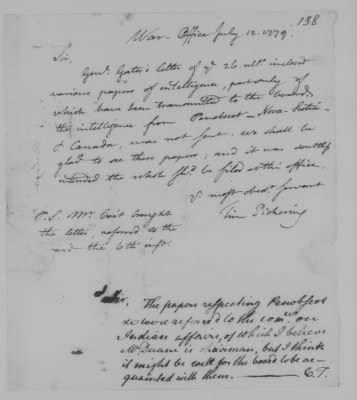 138
War-Office July 12. 1779.
Sir,
Genl. Gates's letter of ye 26. ult. inclosed
various papers of intelligence, part only of
which have been transmitted to the board,
the intelligence from Penobscot - Nova-Scotia
& Canada, was not sent: we shall be
glad to see these papers; and it was
intended the whole shd. be filed in this office.
yr. most obedt. servant
Tim. Pickering
P.S. Mr. brought
the letter, referred to the
the 6th inst.
Sir. The papers respecting Penobscot
&c were referred to the comee. on
Indian affairs, of which I believe
Mr Duane is chairman, but I think
it might be well for the board to be ac-
quainted with them. C. T.